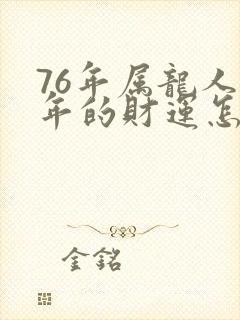 76年属龍人
年的財運怎
金銘